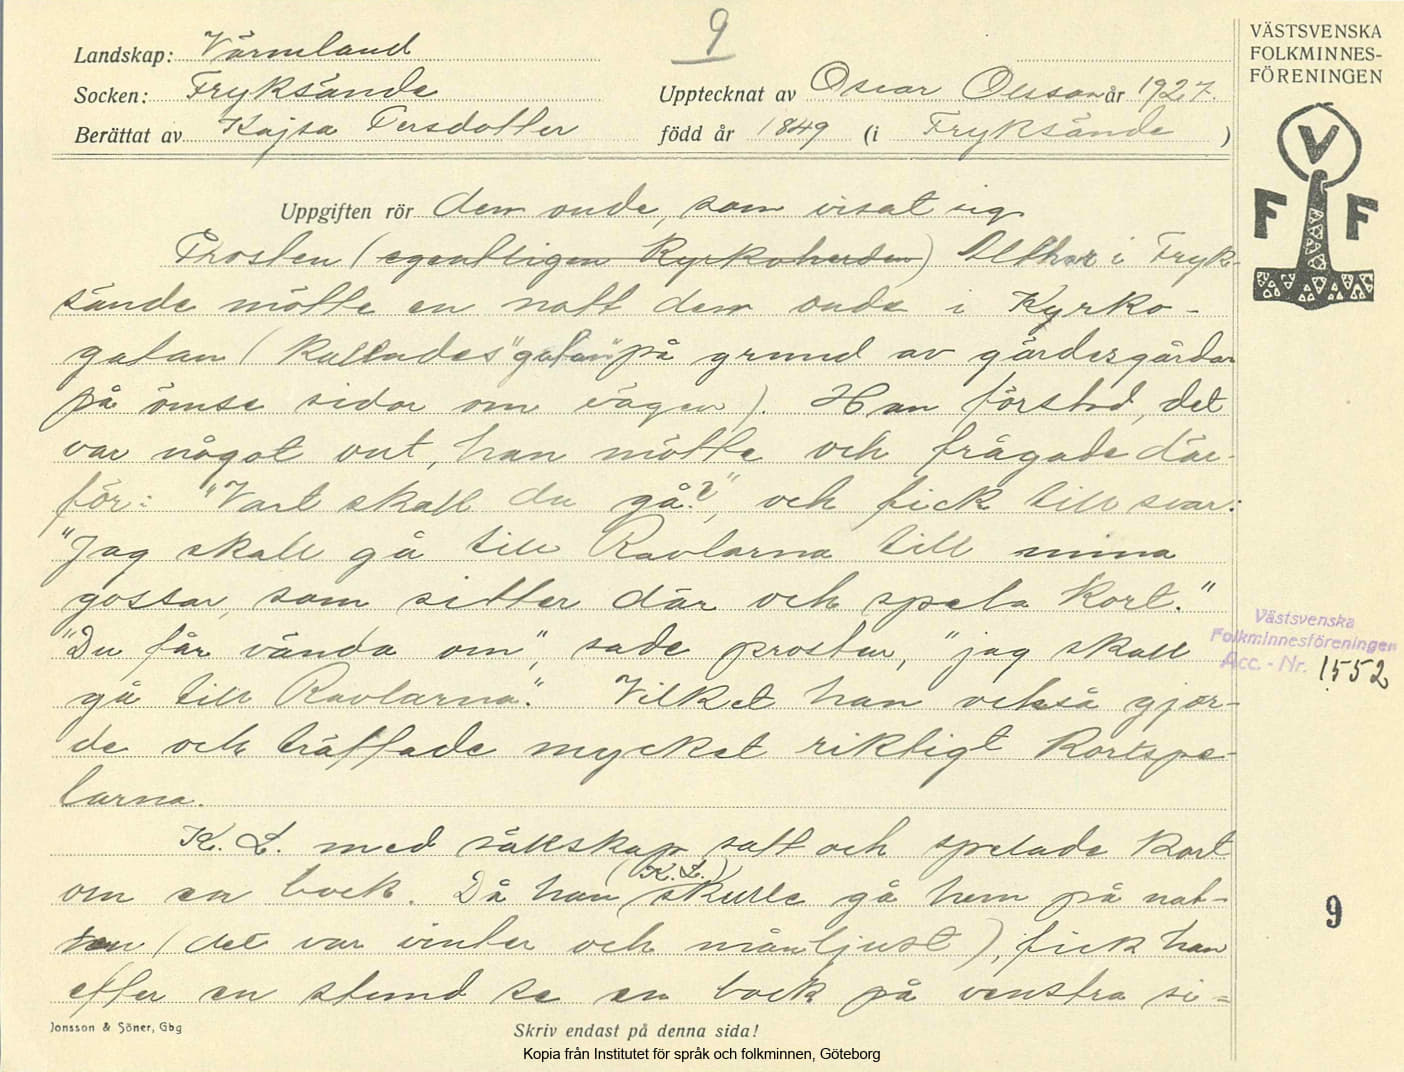 9
Landskap: Värmland
Socken: Fryksände
Upptecknat av Oscar Olsson år 1927.
Berättat av Kajsa Persdotter född år 1849 (i Fryksände)
VÄSTSVENSKA
FOLKMINNES-
FÖRENINGEN
V
F F
Uppgiften rör den onde, som visat sig
Prosten (egentligen Kyrkoherden) Althor i Fryk-
sände mötte en natt den onde i Kyrko-
gatan (kallades "gatan" på grund av gärdesgårdar
på ömse sidor om vägen). Han förstod, det
var något ont, han mötte och frågade där-
för: "Vart skall du gå?", och fick till svar:
"Jag skall gå till Ravlarna till mina
gossar, som sitter där och spela kort."
"Du får vända om", sade prosten, "jag skall
gå till Ravlarna". Vilket han också gjor-
de och träffade mycket riktigt kortspe-
larna.
K. L. med sällskap satt och spelade kort
om en bock. Då han (K. L.) skulle gå hem på nat-
ten (det var vinter och månljust), fick han
efter en stund se en bock på venstra si-
Västsvenska
Folkminnesföreningen
Acc. - Nr. 1552
9
Jonsson & Söner, Gbg
Skriv endast på denna sida!
Kopia från Institutet för språk och folkminnen, Göteborg